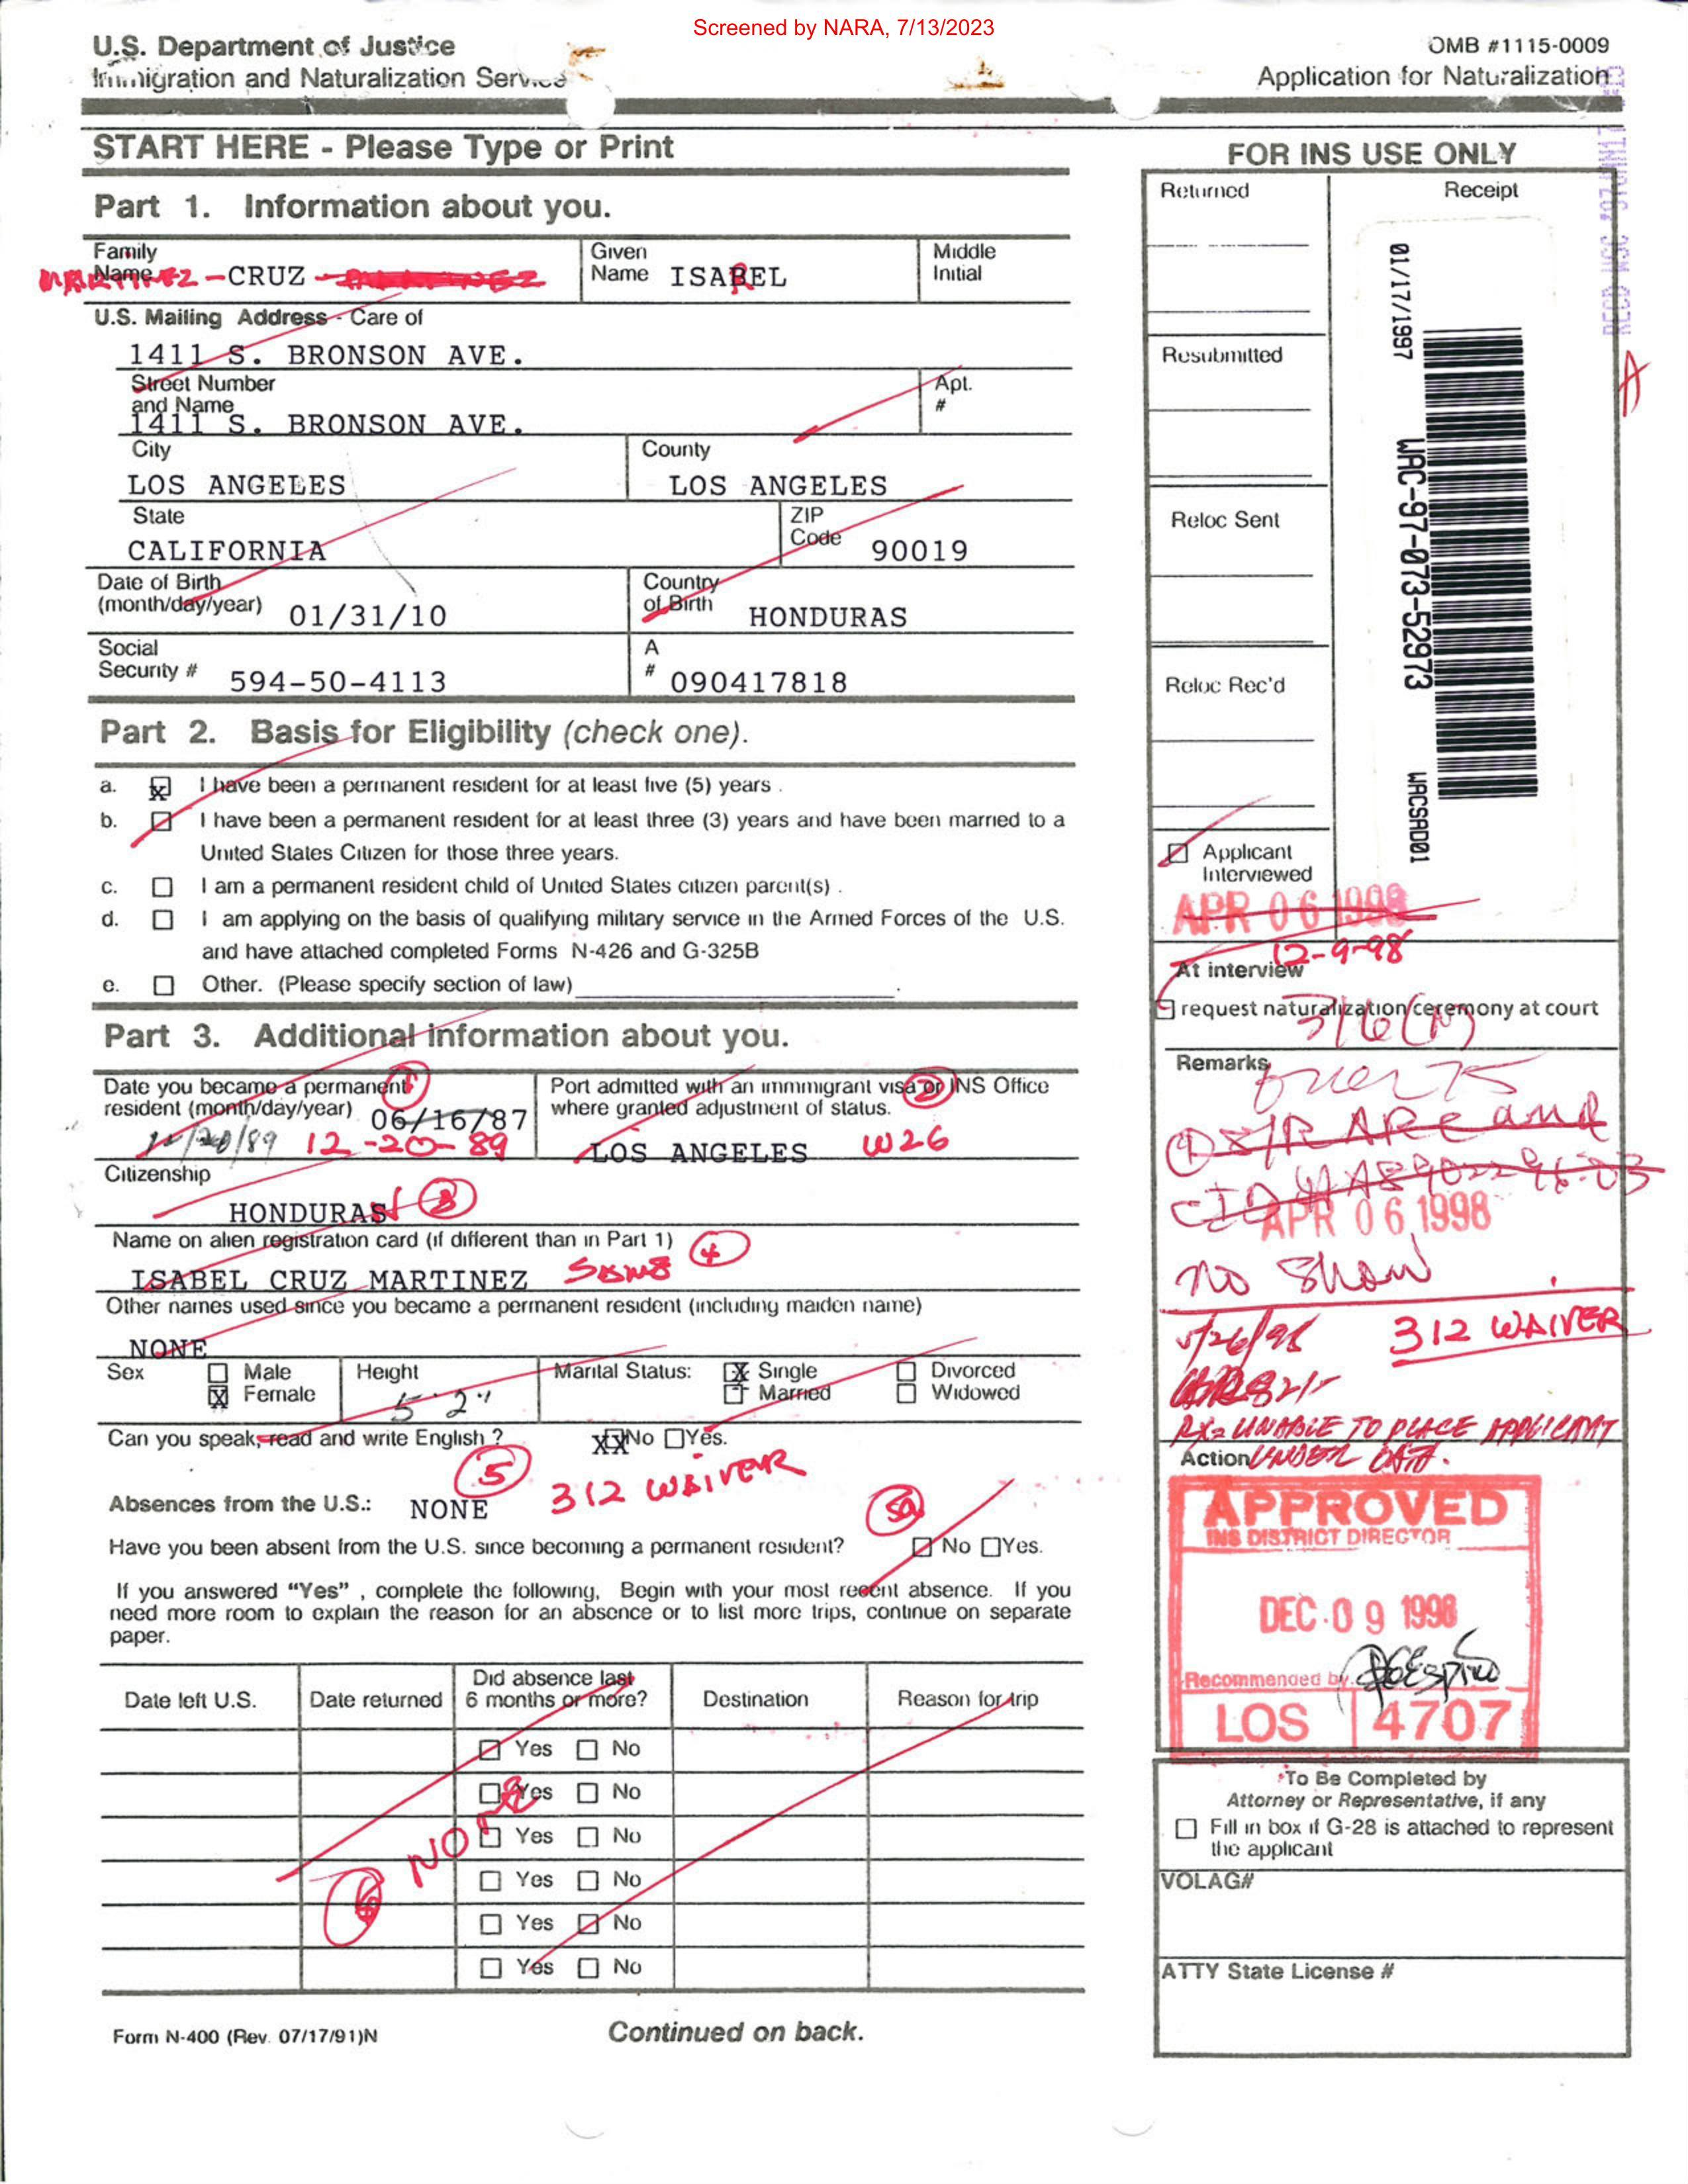 Screened by NARA, 7/13/2023
U.S. Department of Justice
Immigration and Naturalization Service
OMB #1115-0009
Application for Naturalization
START HERE - Please Type or Print
Part 1. Information about you.
Family Name
MARTINEZ -CRUZ
Given Name ISABEL
Middle Initial
U.S. Mailing Address - Care of
1411 S. BRONSON AVE.
Street Number and Name
1411 S. BRONSON AVE.
Apt. #
City
LOS ANGELES
County
LOS ANGELES
State
CALIFORNIA
ZIP Code 90019
Date of Birth (month/day/year) 01/31/10
Country of Birth HONDURAS
Social Security # 594-50-4113
A # 090417818
Part 2. Basis for Eligibility (check one).
a. X I have been a permanent resident for at least five (5) years .
b. I have been a permanent resident for at least three (3) years and have been married to a
United States Citizen for those three years.
c. I am a permanent resident child of United States citizen parent(s) .
d. I am applying on the basis of qualifying military service in the Armed Forces of the U.S.
and have attached completed Forms N-426 and G-325B
e. Other. (Please specify section of law) .
Part 3. Additional information about you.
Date you became a permanent 1
resident (month/day/year) 06/16/87
12/20/89 12-20-89
Port admitted with an immmigrant visa or INS Office 2
where granted adjustment of status.
LOS ANGELES W26
Citizenship
HONDURAS 3
Name on alien registration card (if different than in Part 1) 4
ISABEL CRUZ MARTINEZ SAME
Other names used since you became a permanent resident (including maiden name)
NONE
Sex Male
X Female
Height
5'2"
Marital Status: X Single
Married
Divorced
Widowed
Can you speak, read and write English ? XX No Yes.
5 312 WAIVER
Absences from the U.S.: NONE
5a
Have you been absent from the U.S. since becoming a permanent resident? No Yes.
If you answered “Yes” , complete the following, Begin with your most recent absence. If you
need more room to explain the reason for an absence or to list more trips, continue on separate
paper.
Date left U.S. Date returned Did absence last 6 months or more? Destination Reason for trip
Yes No
Yes No
Yes No
Yes No
Yes No
Yes No
6 NONE
Form N-400 (Rev. 07/17/91)N
Continued on back.
FOR INS USE ONLY
Returned
Receipt
01/17/1997
WAC-97-073-52973
WACSAD01
Resubmitted
Reloc Sent
Reloc Rec'd
A
Applicant
Interviewed
APR 06 1998
12-9-98
At interview
request naturalization ceremony at court
3/6 (N)
Remarks
over 75
APR 06 1998
no Show
312 WAIVER
RX= UNABLE TO PLACE APPLICANT
UNDER OATH.
Action
APPROVED
INS DISTRICT DIRECTOR
DEC 09 1998
Recommended by
LOS 4707
To Be Completed by
Attorney or Representative, if any
Fill in box if G-28 is attached to represent
the applicant
VOLAG#
ATTY State License #